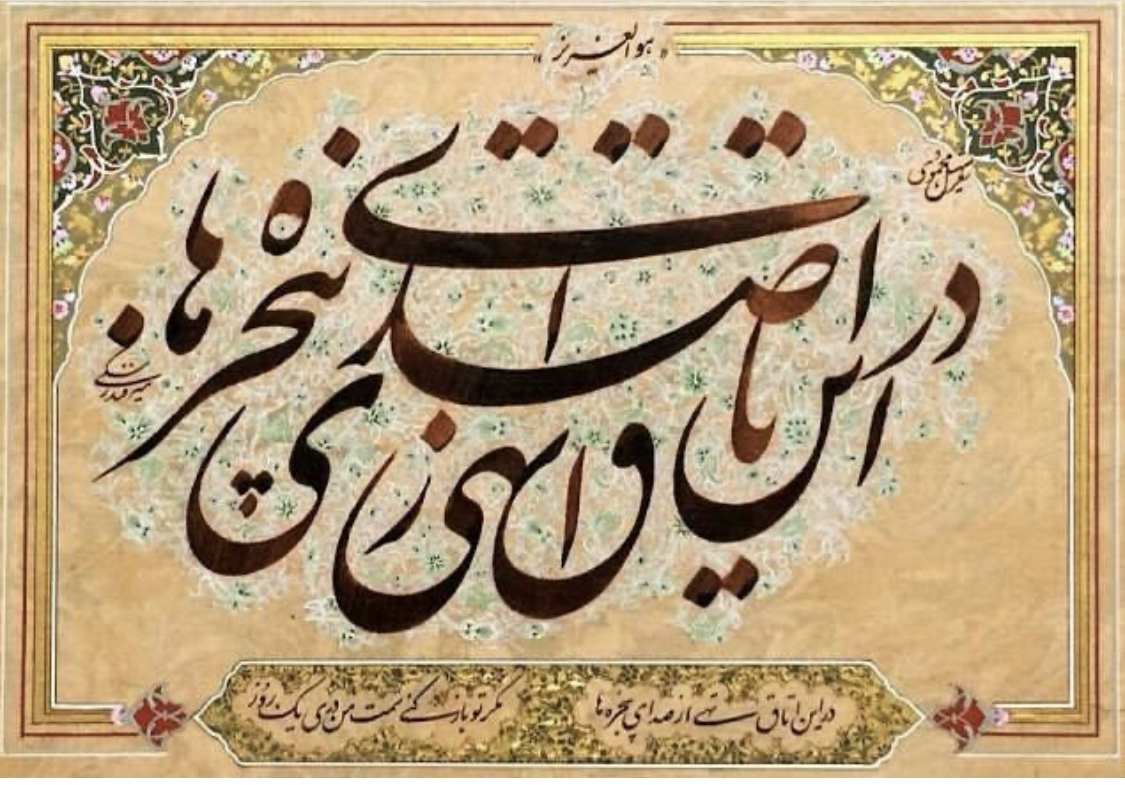 « هو العزیز »
در این اتاق تهی از صدای پنجره ها
در این اتاق تهی از صدای پنجره ها
مگر تو باز کنی سمت من دری یک روز